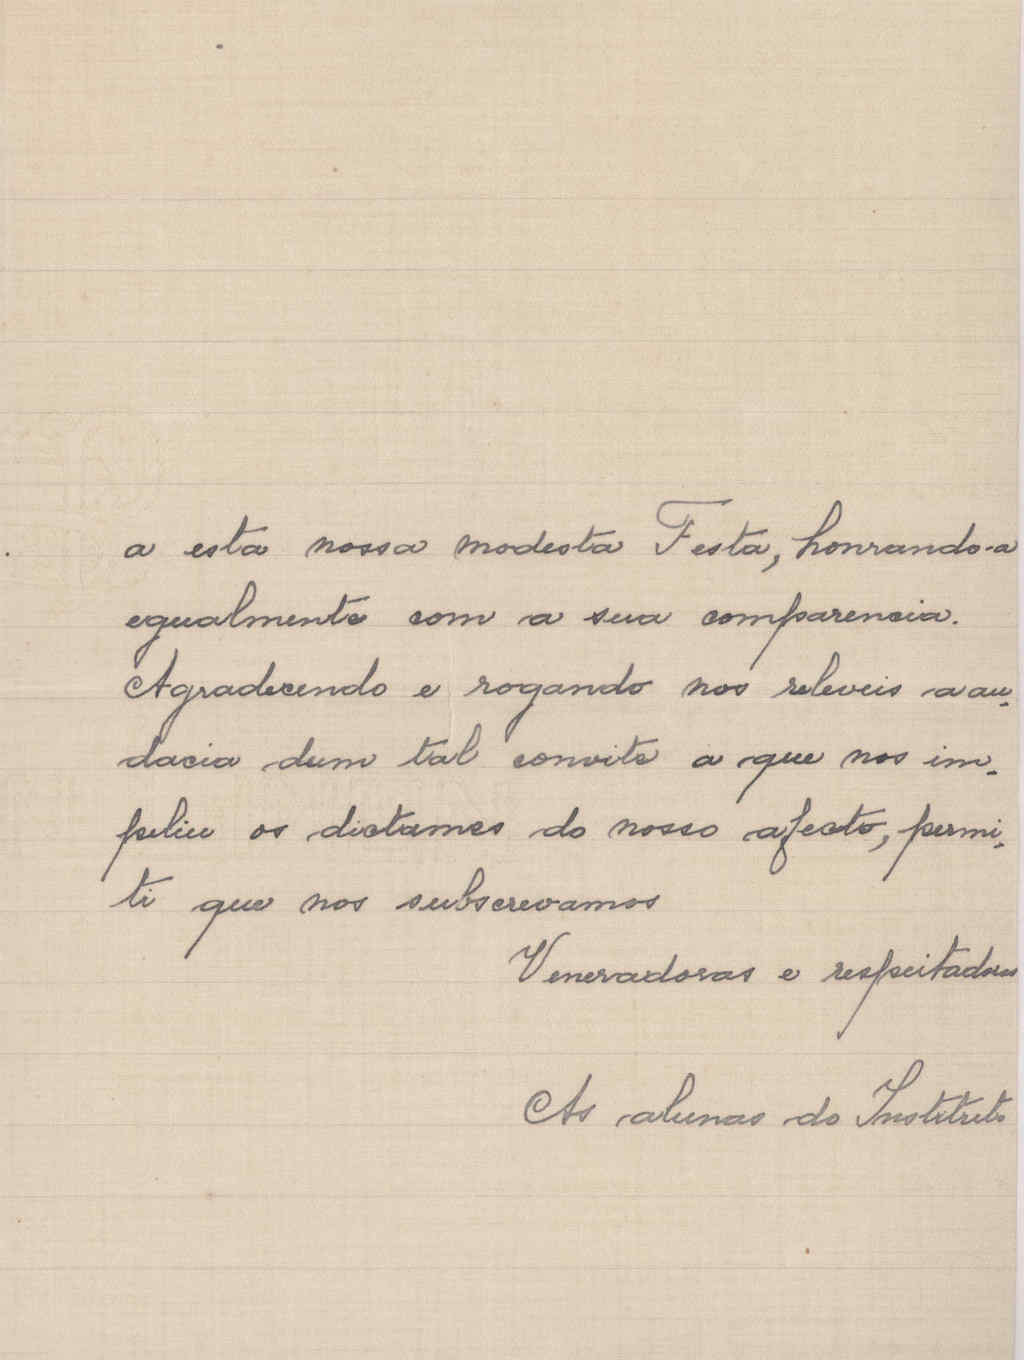 a esta nossa modesta Festa, honrando-a
egualmente com a sua comparencia.
Agradecendo e rogando nos releveis a au-
dacia dum tal convite a que nos im-
peliu os dictames do nosso afecto, permi-
ti que nos subscrevamos
Veneradoras e respeitadoras
As alunas do Instituto